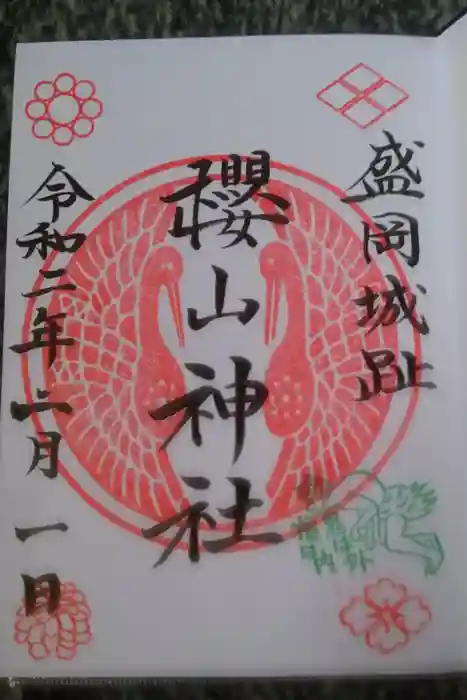 盛岡城趾
櫻山神社
令和二年二月一日